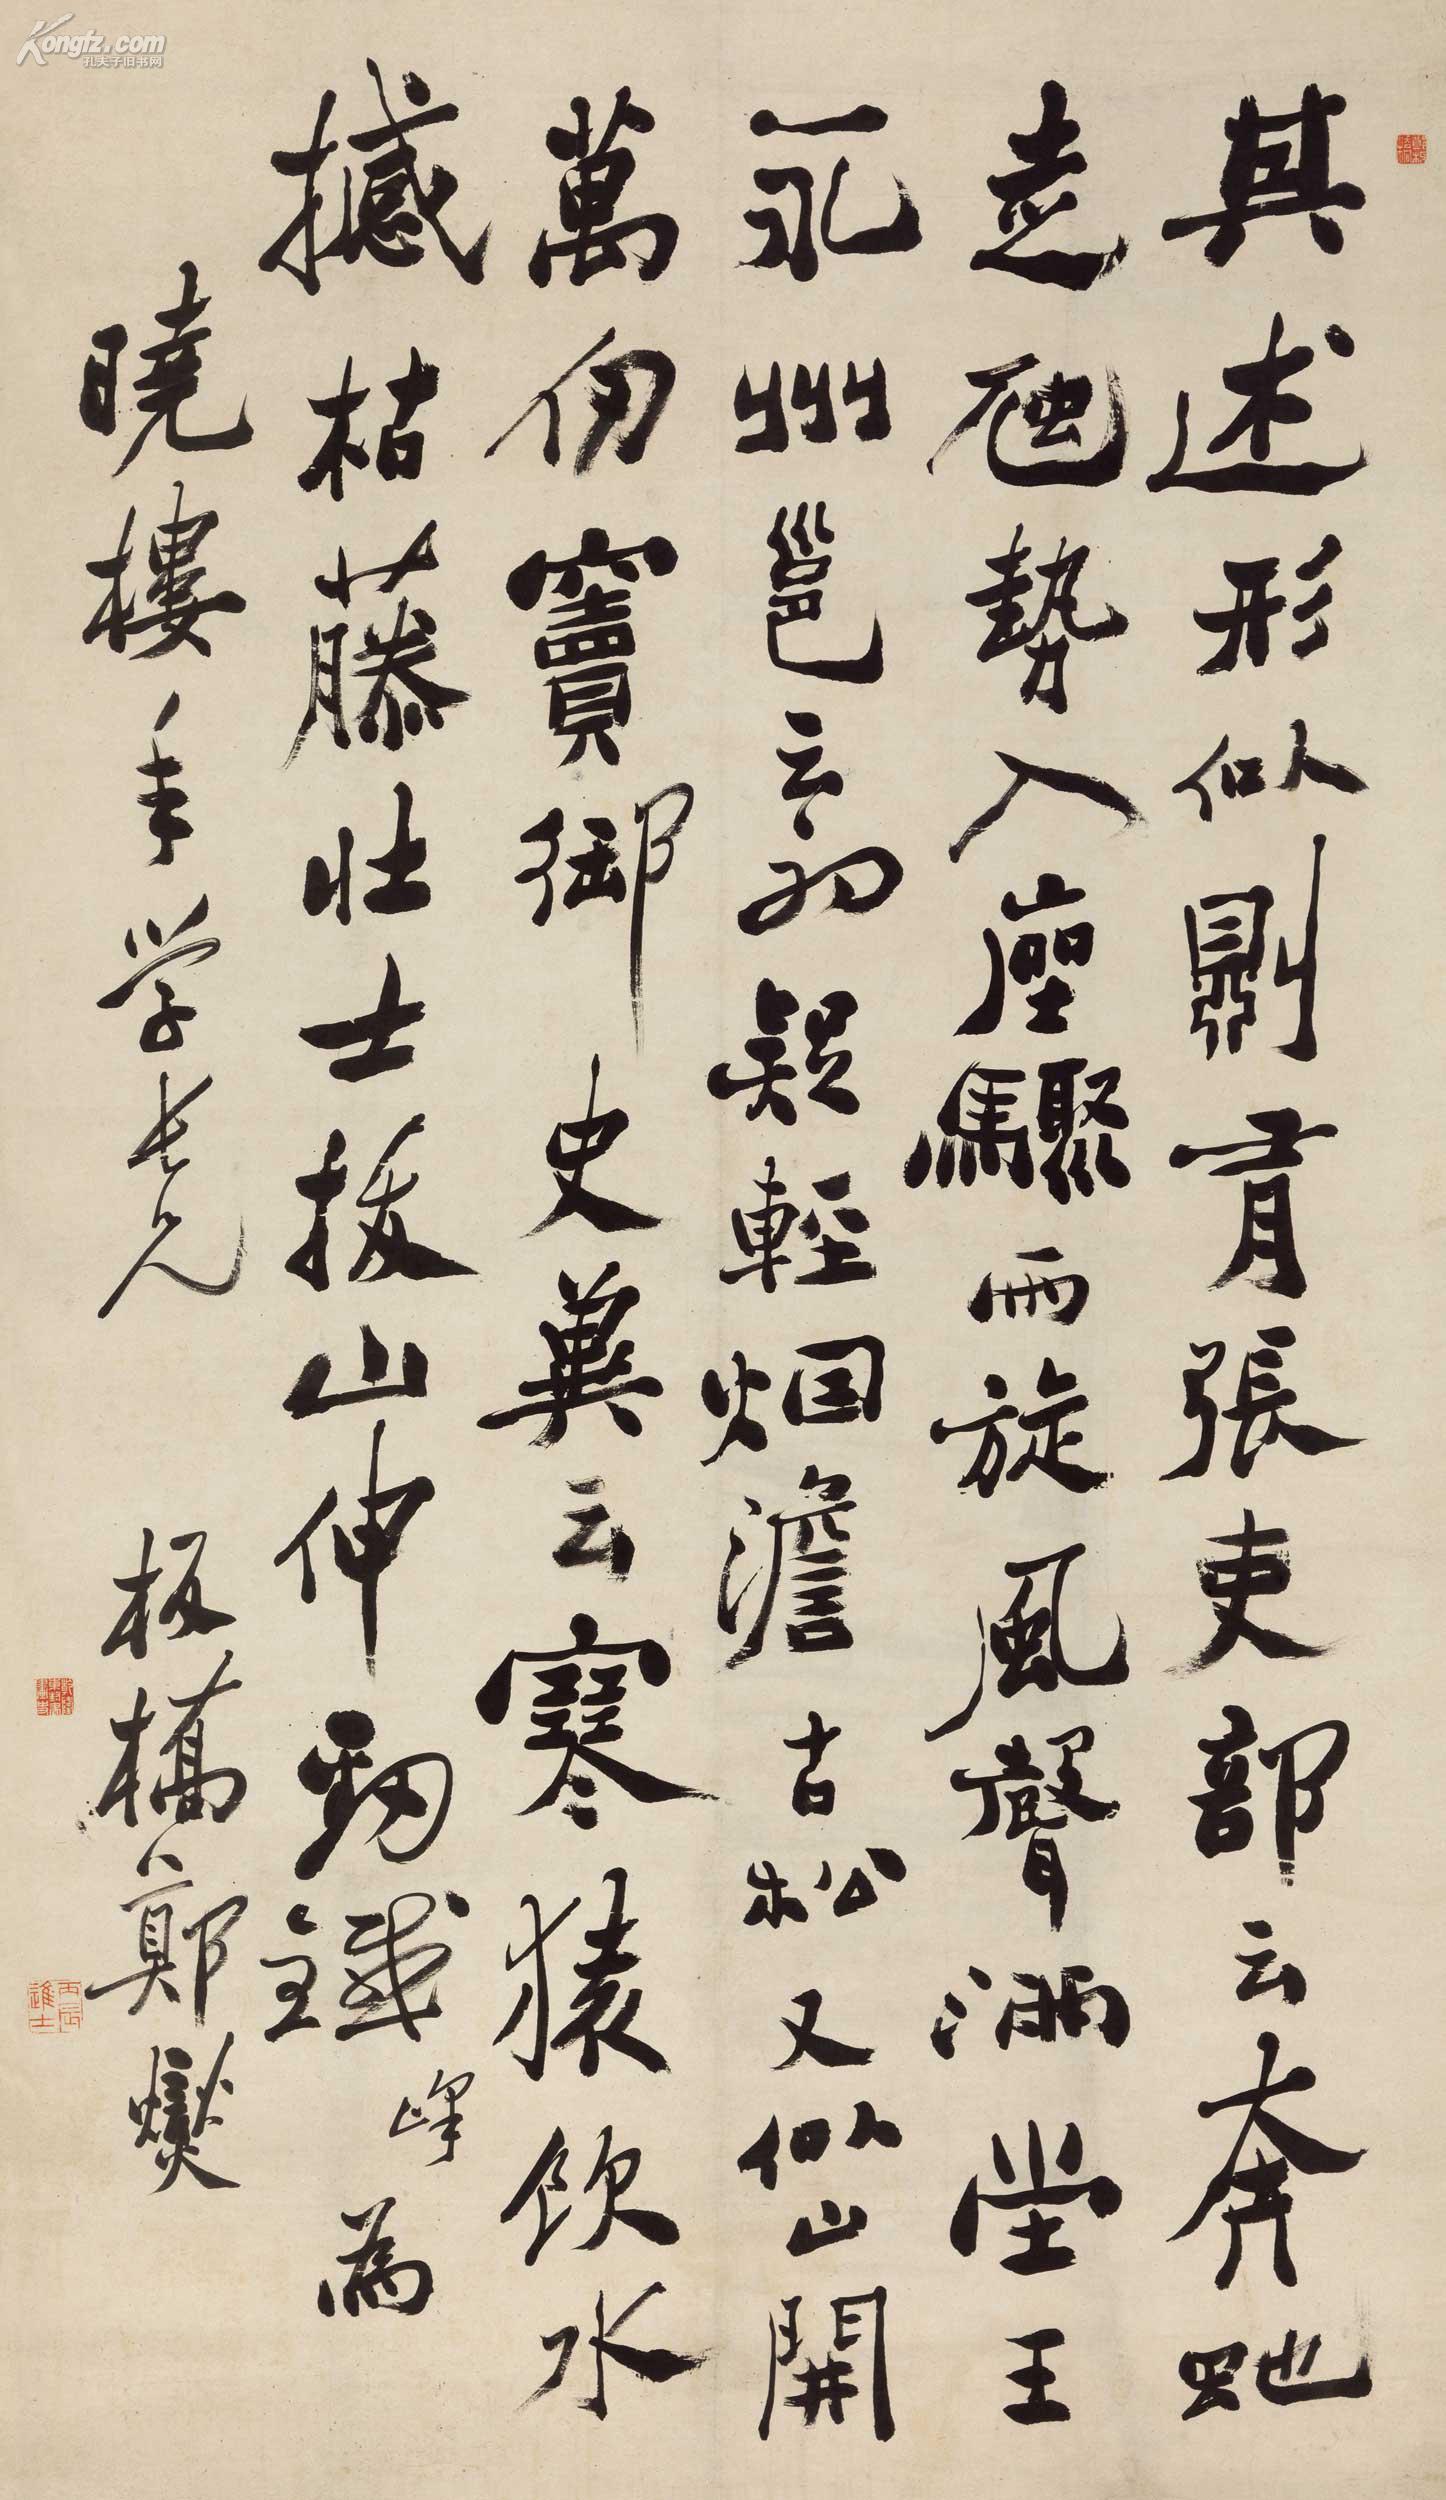 其述形似則有張吏部云奔蛇
走虺勢入座驟雨旋風聲滿堂王
永州邕云初疑輕烟澹古松又似山開
萬仞竇御史冀云寒猿飲水
撼枯藤壯士拔山伸勁鐵 峰 為
曉樓年學長兄 板橋鄭燮
丙辰進士
Kongfz.com
孔夫子旧书网